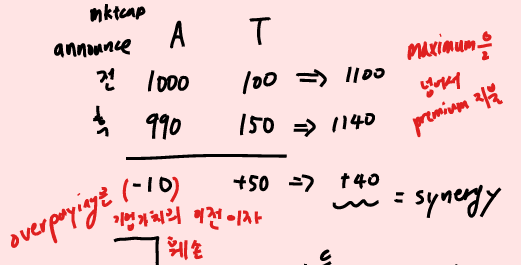 mktcap
announce A T
전 1000 100 ⇒ 1100
후 990 150 ⇒ 1140
(-10) +50 ⇒ +40 = synergy
maximum을
넘어서
premium 지불
overpaying은
기업가치의 이전이자
훼손